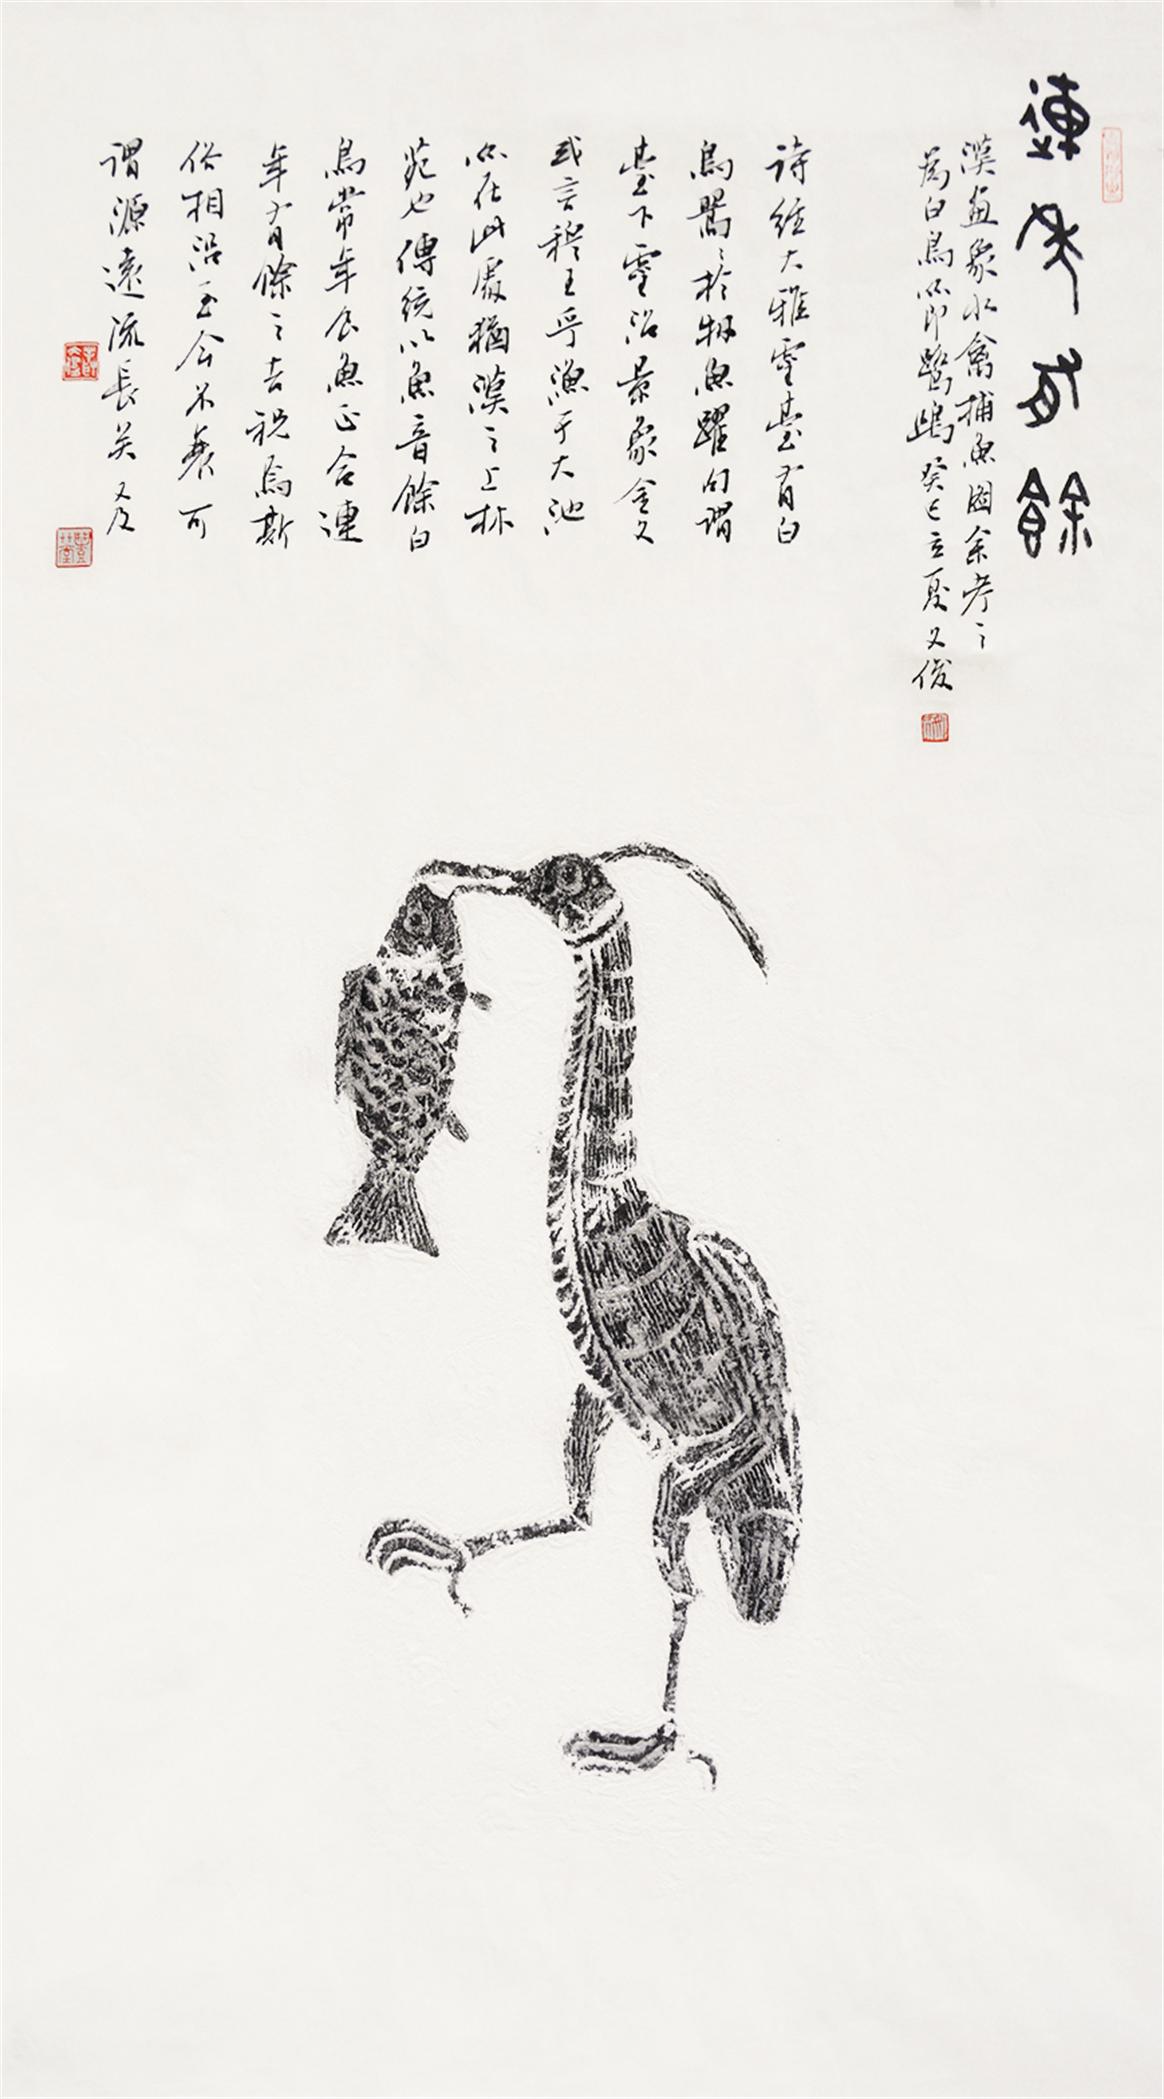 連年有餘
漢畫象水禽捕魚圖余考之
為白鳥亦即鷺鷥癸巳立夏文俊
詩經大雅靈臺有白
鳥翯翯於牣魚躍句謂
臺下靈沼景象金文
或言穆王乎漁于大池
亦在此處猶漢之上林
苑也傳統以魚音餘白
鳥常年食魚正合連
年有餘之吉祝焉斯
俗相沿至今不衰可
謂源遠流長矣又及